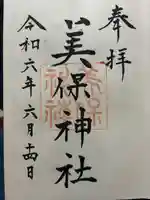 奉拝
美保神社
令和六年六月十四日